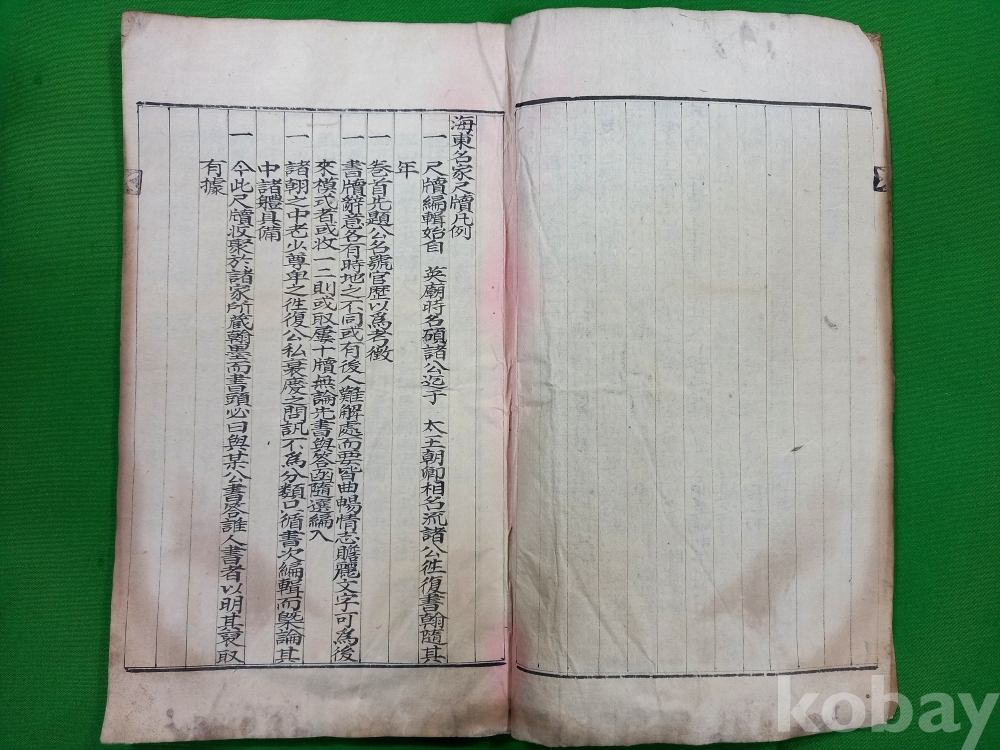 海東名家尺牘凡例
一 尺牘編輯始自 英廟時名碩諸公迄于 太王朝卿相名流諸公徃復書翰隨其
年
一 卷首先題公名號官歷以爲考徵
一 書牘辭意各有時地之不同或有後人難解處而要皆曲暢情志贍麗文字可爲後
來模式者或收一二則或取屢十牘無論先書與答函隨選編入
一 諸朝之中老少尊卑之徃復公私哀慶之問訊不爲分類只循書次編輯而槩論其
中諸體具備
一 今此尺牘收聚於諸家所藏翰墨而書頭必曰與某公書答誰人書者以明其裒取
有據
kobay